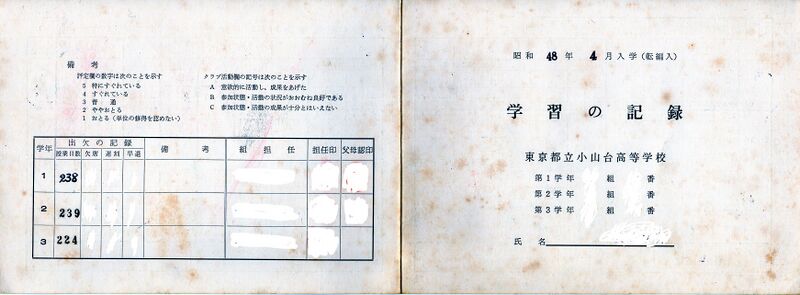 備考
評定欄の数字は次のことを示す
5 特にすぐれている
4 すぐれている
3 普通
2 ややおとる
1 おとる（単位の修得を認めない）
クラブ活動欄の記号は次のことを示す
A 意欲的に活動し、成果をあげた
B 参加状態・活動の状況がおおむね良好である
C 参加状態・活動の成果が十分とはいえない
学年 出欠の記録 備考 組担任 担任印 父母認印
授業日数 欠席 遅刻 早退
1 238
2 239
3 224
昭和 48年 4月入学（転編入）
学習の記録
東京都立小山台高等学校
第1学年 組 番
第2学年 組 番
第3学年 組 番
氏名